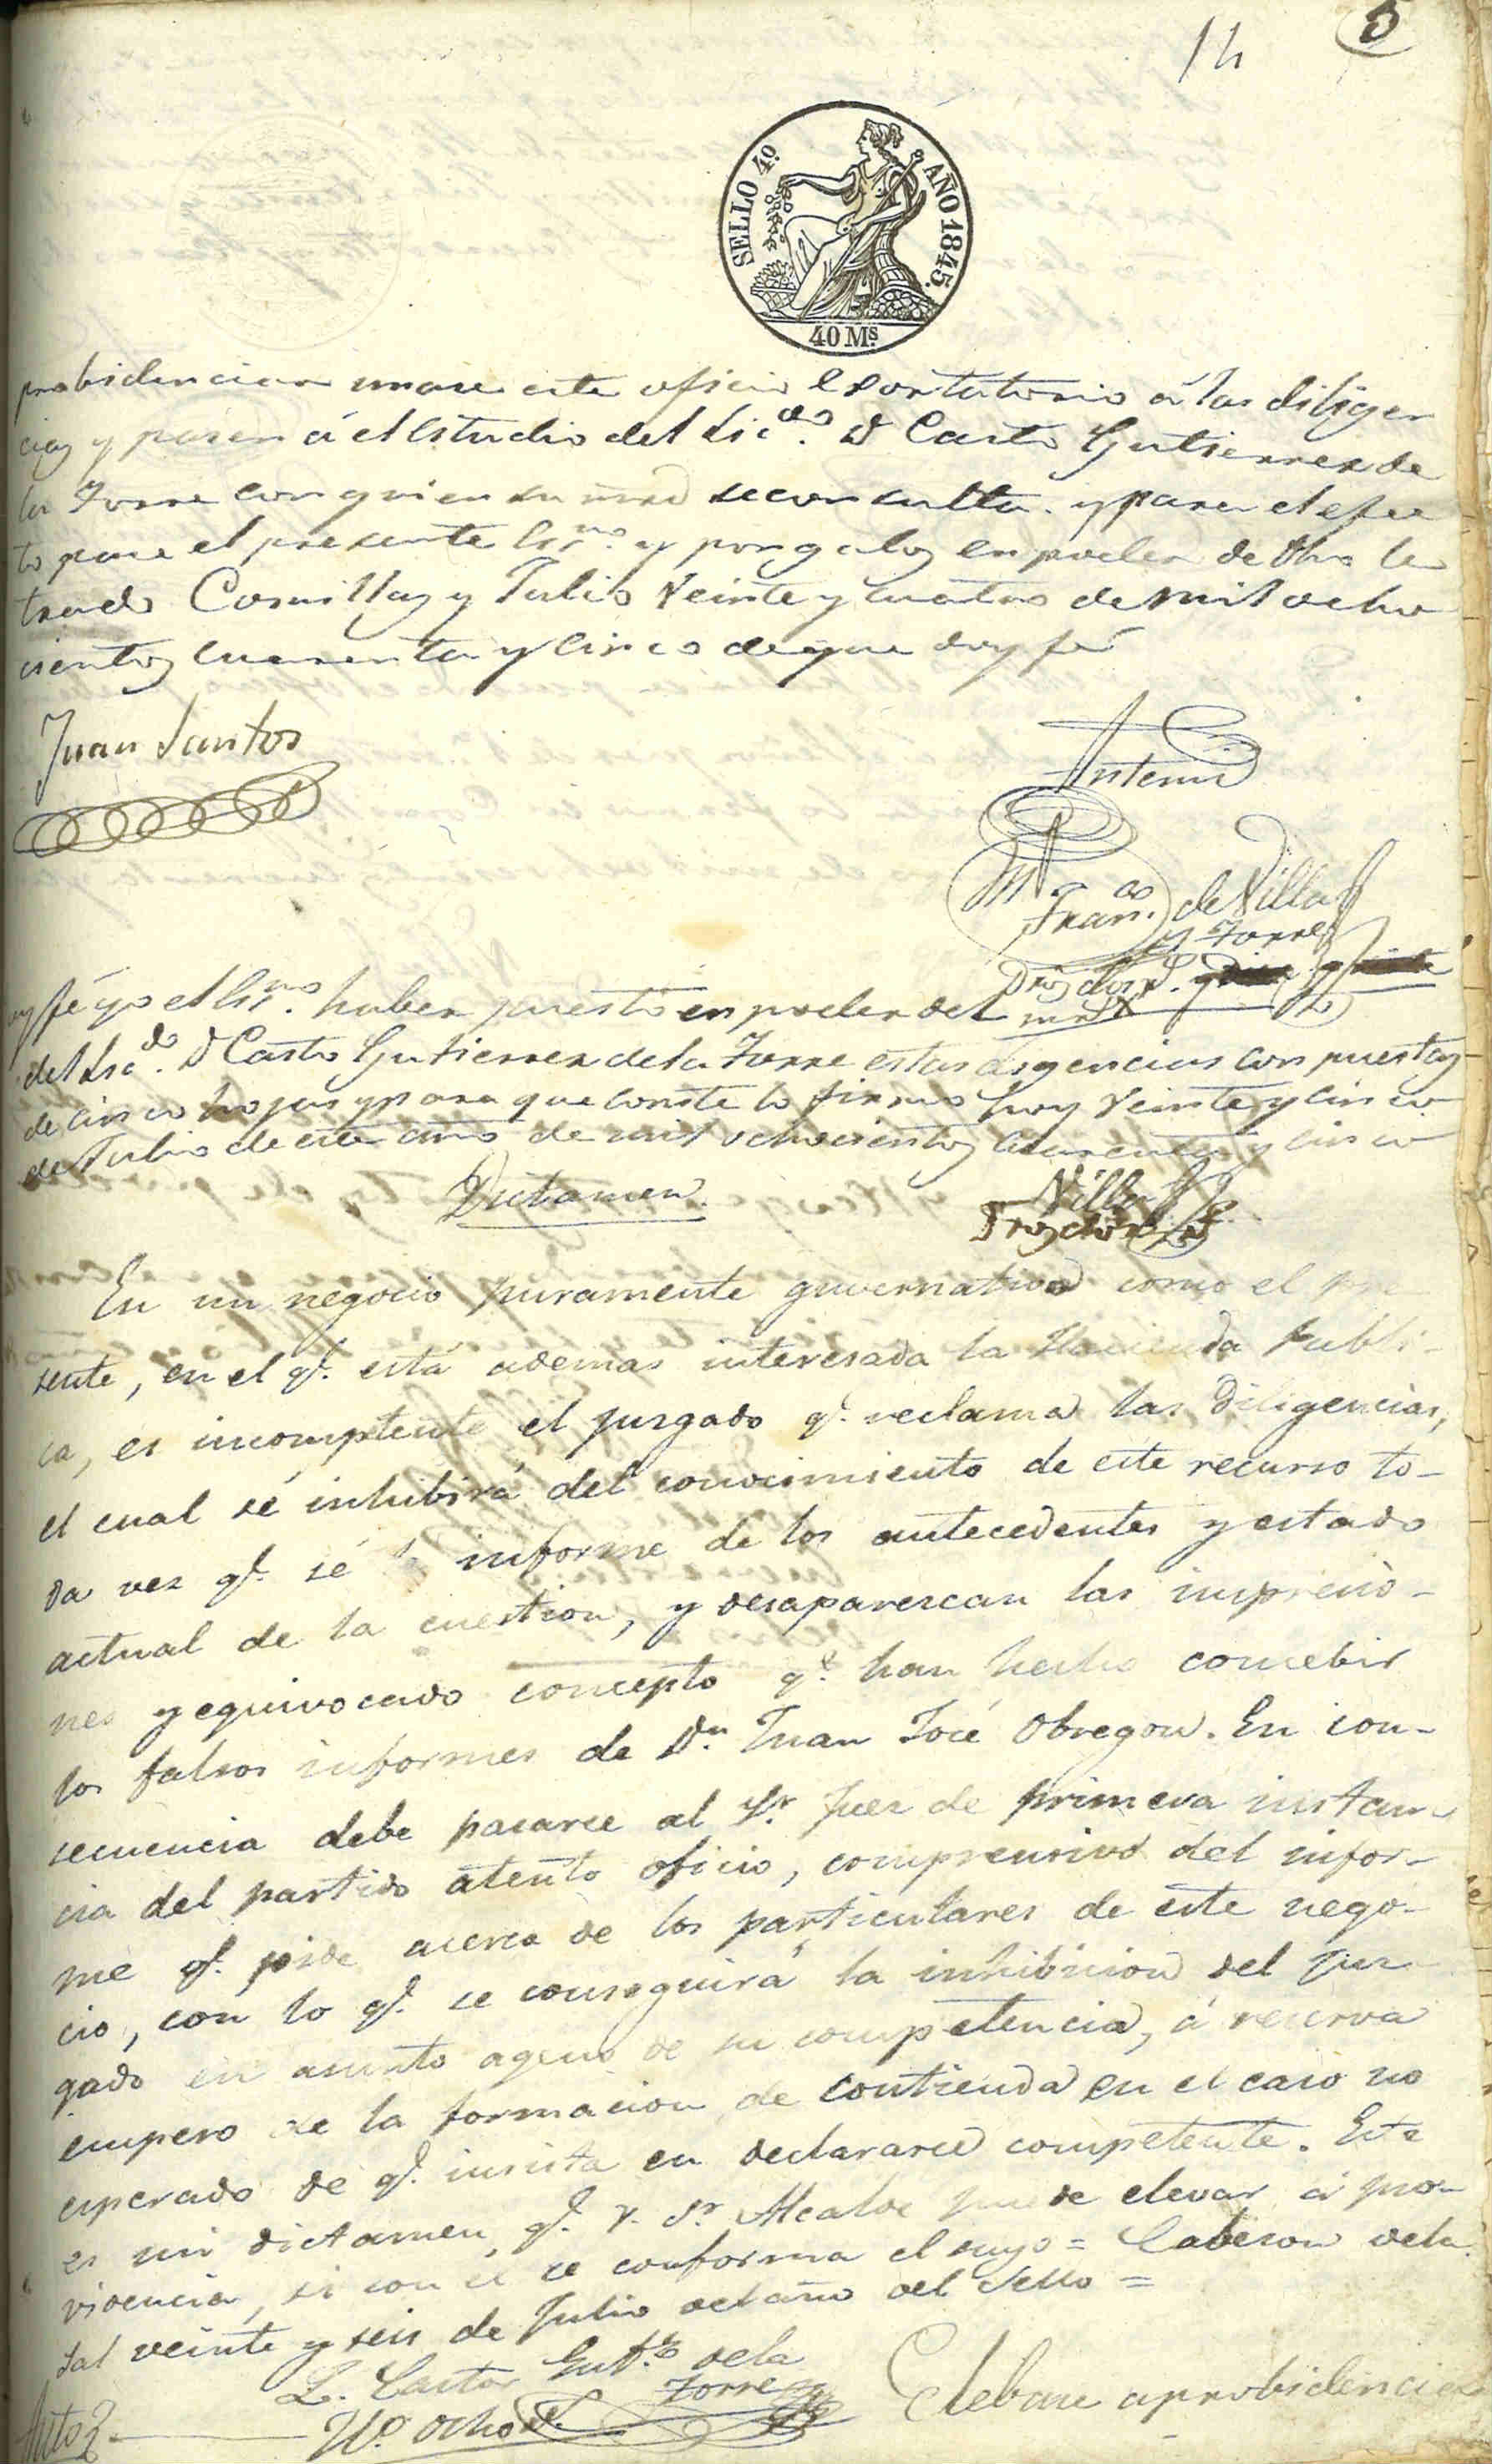 14 5
SELLO 4º. AÑO 1845.
40 Ms.
probidencian unase este oficio esortatorio á las diligen
cias y pasen á el Estudio del Licdo. D Casto Gutierrez de
la Torre con quien su mrd se consulta. y para el efec
to pase el presente Esno. y pongalas en poder de dho le
trado Comillas y Julio Veinte y cuatro de mil ocho
cientos cuarenta y cinco de que doy fé
Juan Santos
Antemi
Franco. de Villa
y Torre
Dros dos rs.
oy fé yo el Esno. haber puesto en poder del
del Licdo. D Casto Gutierrez de la Torre estas digencias conpuestas
de cinco hojas y para que conste lo firmo hoy Veinte y cinco
de Julio de este año de mil ochocientos cuarenta y cinco
Dictamen. Villa
Dros dos rs
En un negocio puramente guvernativo como el pre
sente, en el qe. está ademas interesada la Hacienda Publi-
ca, es incompetente el jusgado qe. reclama las diligencias,
el cual sé inhibirá del conocimiento de este recurso to-
da vez qe. sé le informe de los antecedentes y estado
actual de la cuestion, y desaparescan las impresio-
nes y equivocado concepto qe. han hecho concebir
los falsos informes de Dn. Juan José Obregon. En con-
secuencia debe pasarse al Sr. Juez de primera instan-
cia del partido atento oficio, comprensivo del infor-
me qe. pide acerca de los particulares de este nego-
cio, con lo qe. se conseguirá la inhibicion del juz-
gado en asunto ageno de su competencia, á reserva
empero de la formacion de contienda en el caso no
esperado de qe. insista en declararse competente. Este
es mi dictamen, qe. V. Sr. Alcalde puede elevar á pro-
videncia, si con él se conforma el suyo = Cabeson de la
Sal veinte y seis de Julio del año del Sello =
L. Casto Gutz. de la
Torre
Auto Hs. ocho rs. Elebase aprobidencia